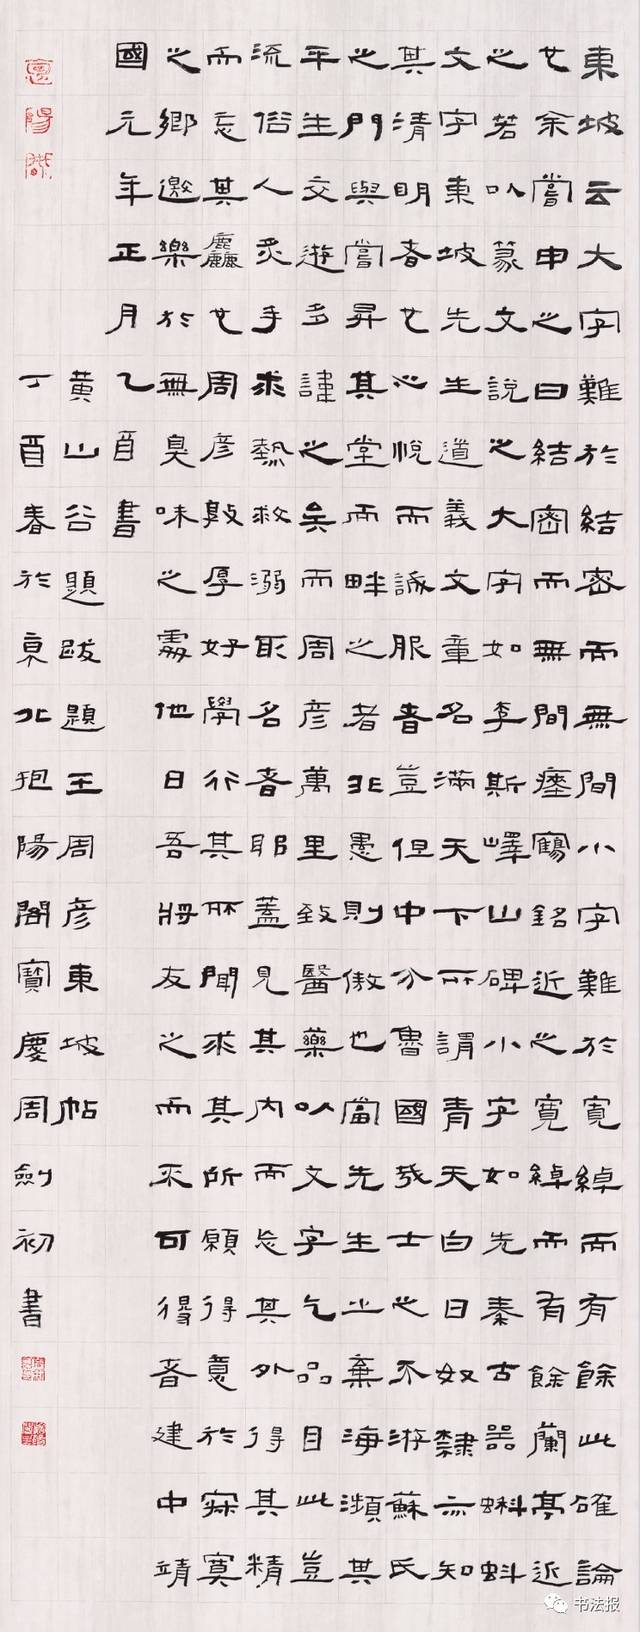 東坡云大字難於結密而無間小字難於寬綽而有餘此確論
也余嘗申之曰結密而無間瘞鶴銘近之寬綽而有餘蘭亭近
之若以篆文說之大字如李斯嶧山碑小字如先秦古器蝌蚪
文字東坡先生道義文章名滿天下所謂青天白日奴隸亦知
其清明者也心悅而誠服者豈但中分魯國哉士之不游蘇氏
之門與嘗昇其堂而畔之者非愚則傲也當先生之棄海瀕其
平生交遊多諱之矣而周彦萬里致醫藥以文字乞品目此豈
流俗人炙手求熱救溺取名者耶蓋見其內而忘其外得其精
而忘其麤也周彦敦厚好學行其所聞求其所願得意於寂寞
之鄉邀樂於無臭味之處他日吾將友之而不可得者建中靖
國元年正月乙酉書
黃山谷題跋題王周彦東坡帖
丁酉春於京北抱陽閣寶慶周劍初書
书法报